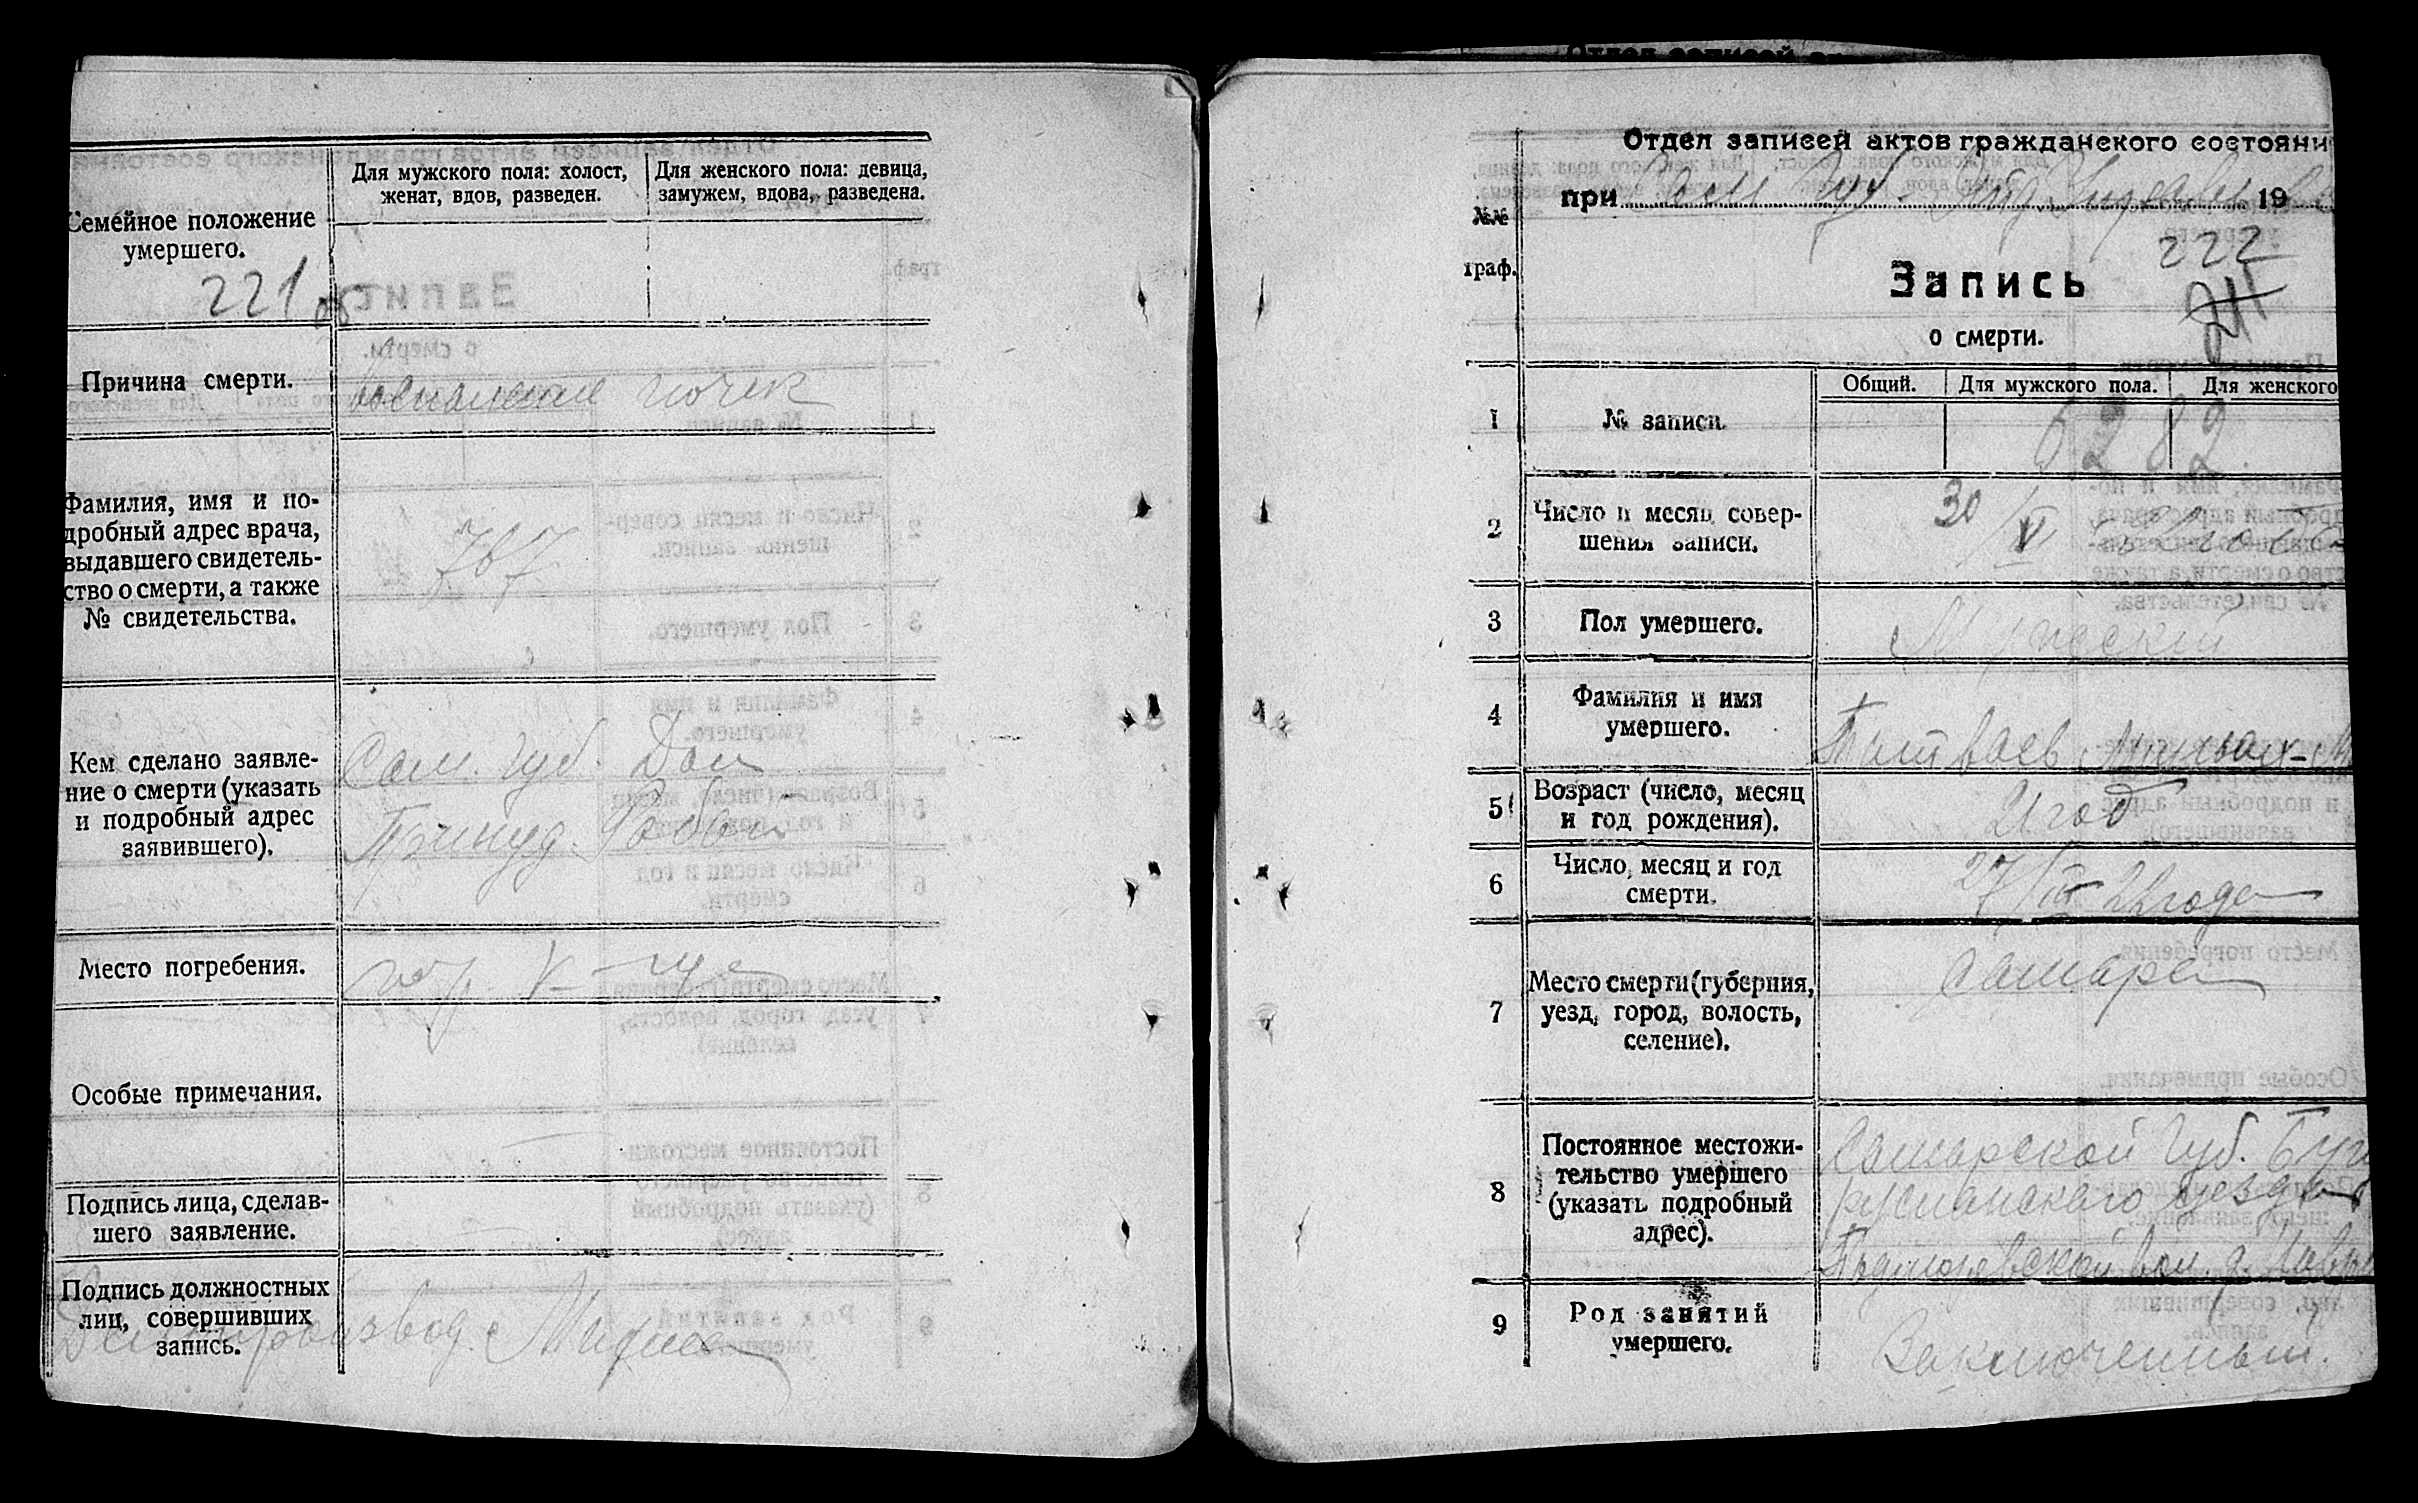 Семейное положение
умершего.
Для мужского пола: холост,
женат, вдов, разведен.
Для женского пола: девица,
замужем, вдова, разведена.
221 об
Причина смерти.
Воспаление почек
Фамилия, имя и по-
дробный адрес врача,
выдавшего свидетель-
ство о смерти, а также
№ свидетельства.
767
Кем сделано заявле-
ние о смерти (указать
и подробный адрес
заявившего).
Сам. губ. Дом
Принуд. Работ
Место погребения.
Особые примечания.
Подпись лица, сделав-
шего заявление.
Подпись должностных
лиц, совершивших
запись.
Делопроизвод.
Отдел записей актов гражданского состояни
при Сам губ. 19
№№
граф.
222
Запись
о смерти.
Общий.
Для мужского пола.
Для женского
1
№ записи.
6282
2
Число и месяц совер-
шения записи.
30
3
Пол умершего.
Мужской
4
Фамилия и имя
умершего.
5
Возраст (число, месяц
и год рождения).
21 год
6
Число, месяц и год
смерти.
27/III 22 года
7
Место смерти (губерния,
уезд, город, волость,
селение).
Самара
8
Постоянное местожи-
тельство умершего
(указать подробный
адрес).
Самарской губ. Бугу
русланского уезда
вол. д.
9
Род занятий
умершего.
Заключенный.